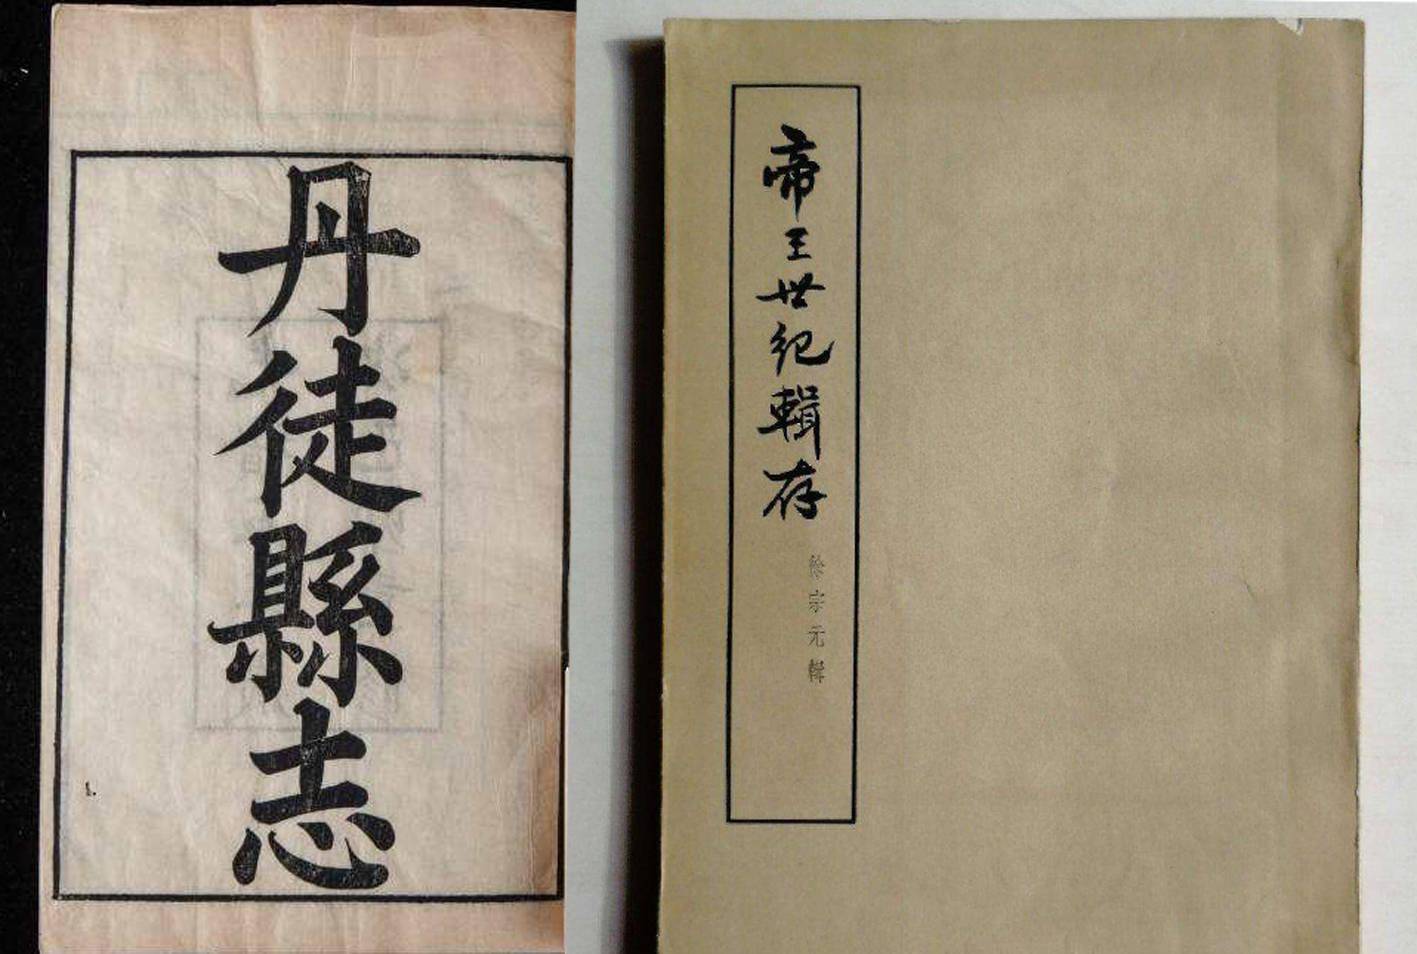 丹徒縣志
帝王世紀輯存
徐宗元輯